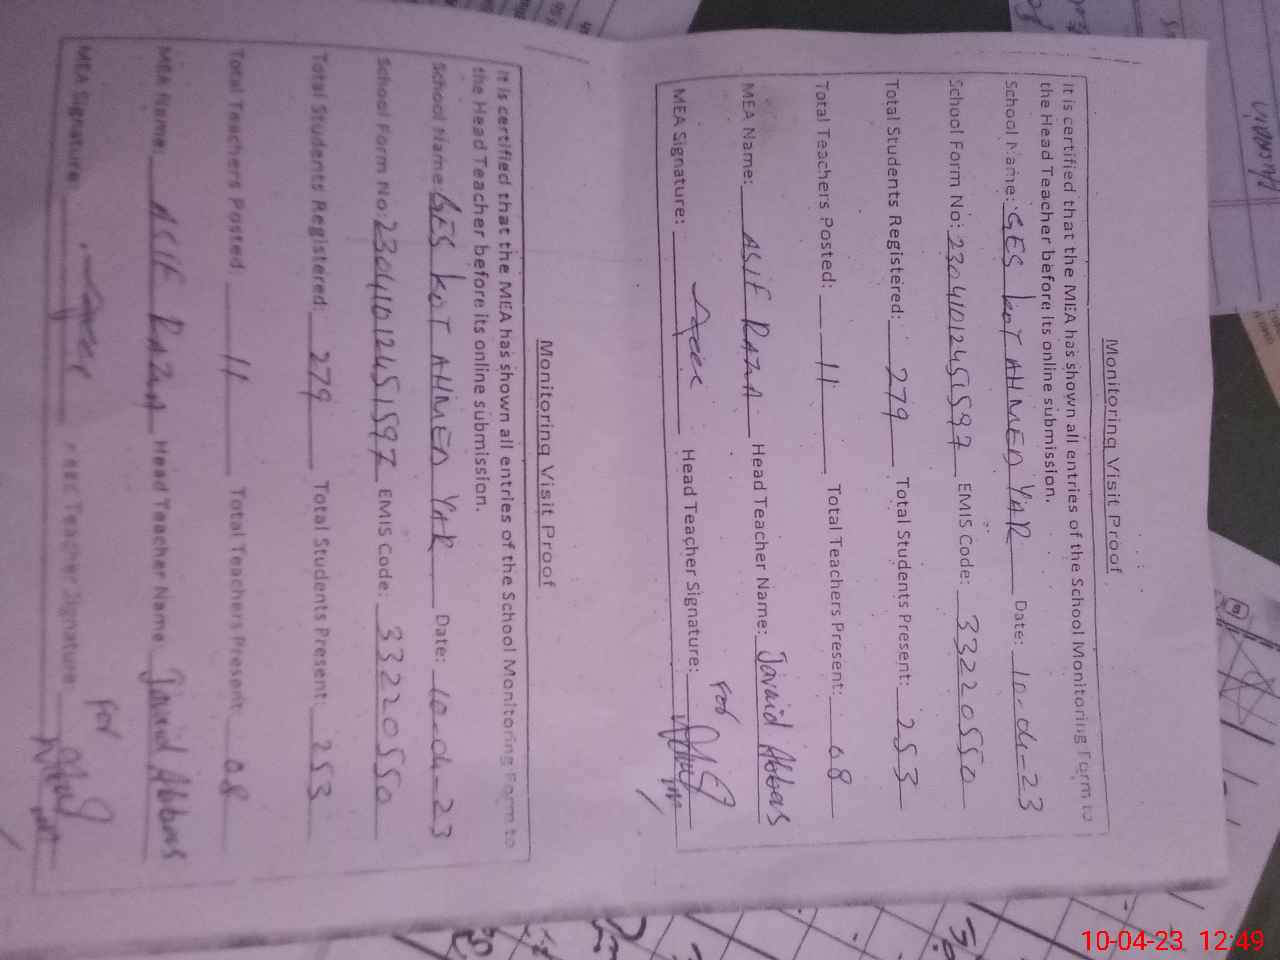 Monitoring Visit Proof
It is certified that the MEA has shown all entries of the School Monitoring Form to
the Head Teacher before its online submission.
School Name: GES KOT AHMED YAR Date: 10-04-23
School Form No: 23041012451597 EMIS Code: 33220550
Total Students Registered: 279 Total Students Present: 253
Total Teachers Posted: 11 Total Teachers Present: 08
MEA Name: ASIF RAZA Head Teacher Name: Javaid Abbas
MEA Signature: Head Teacher Signature: For
Monitoring Visit Proof
It is certified that the MEA has shown all entries of the School Monitoring Form to
the Head Teacher before its online submission.
School Name: GES KOT AHMED YAR Date: 10-04-23
School Form No: 23041012451597 EMIS Code: 33220550
Total Students Registered: 279 Total Students Present: 253
Total Teachers Posted: 11 Total Teachers Present: 08
MEA Name: ASIF RAZA Head Teacher Name: Javaid Abbas
MEA Signature: Head Teacher Signature: For
10-04-23 12:49